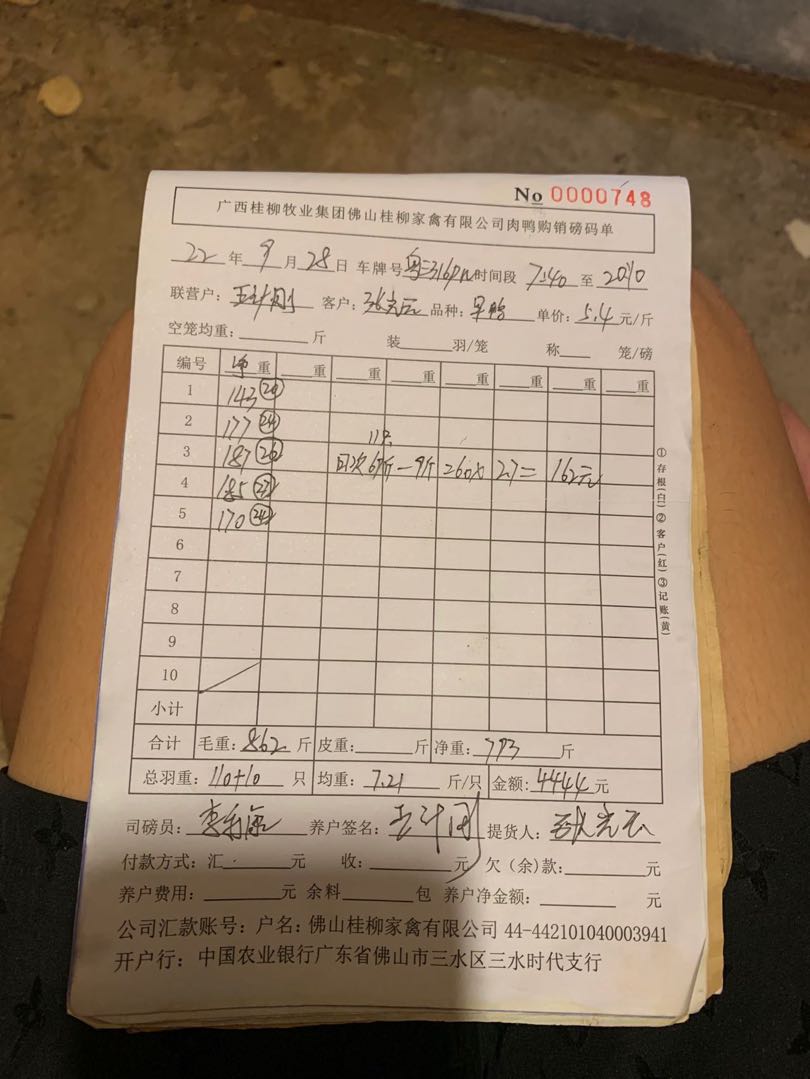 No 0000748
广西桂柳牧业集团佛山桂柳家禽有限公司肉鸭购销磅码单
22 年 9 月 28 日 车牌号 时间段 7:40 至
联营户: 客户: 品种: 单价: 5.4 元/斤
空笼均重: 斤 装 羽/笼 称 笼/磅
编号 净重 重 重 重 重 重 重 重
1 143 (20)
2 177 (24)
11只
3 187 (26) 日次67斤-9斤 = 60X 2.7= 162元
4 185
5 170
6
7
8
9
10
小计
合计 毛重: 862 斤 皮重: 斤 净重: 793 斤
总羽重: 110+10 只 均重: 7.21 斤/只 金额: 4444 元
司磅员: 养户签名: 提货人:
付款方式: 汇 元 收: 元 欠(余)款: 元
养户费用: 元 余料 包 养户净金额: 元
公司汇款账号: 户名: 佛山桂柳家禽有限公司 44-442101040003941
开户行: 中国农业银行广东省佛山市三水区三水时代支行
①存根(白)②客户(红)③记账(黄)